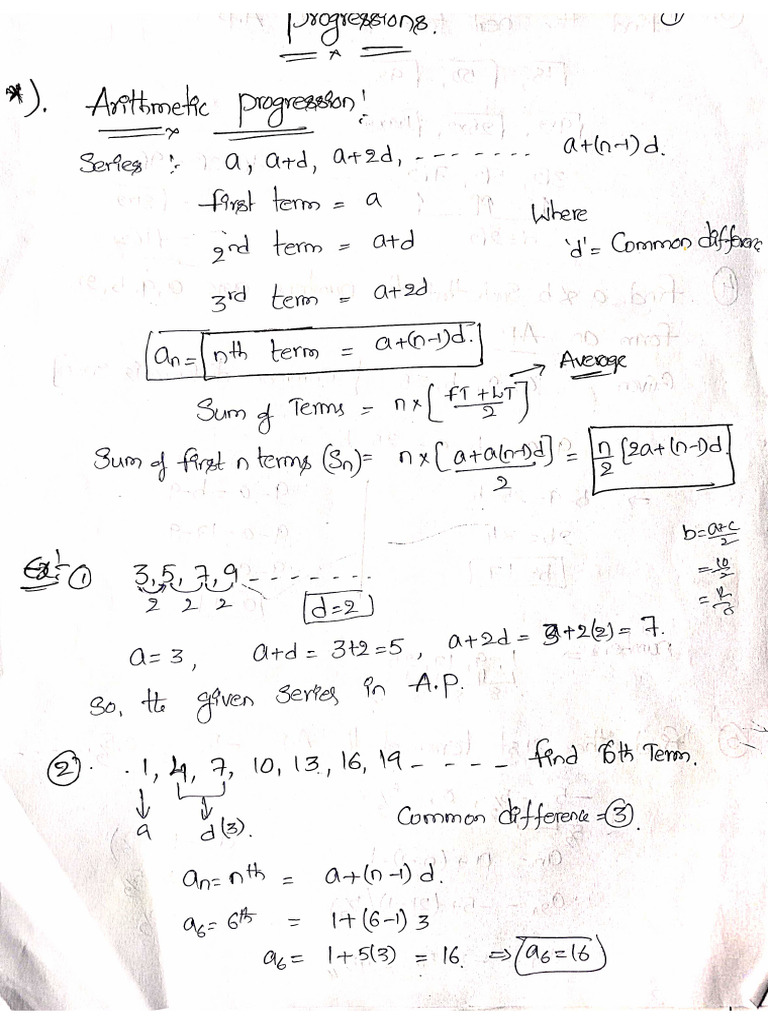 Progressions. ①
*). Arithmetic progression:
Series :- a, a+d, a+2d, -------- a+(n-1)d.
first term = a
Where
2nd term = a+d
'd' = Common differenc
3rd term = a+2d
an = nth term = a+(n-1)d.
→ Average
Sum of Terms = n×[FT+LT/2]
Sum of first n terms (Sn) = n×[a+a(n-1)d]/2 = n/2 [2a+(n-1)d
b=a+c/2
=10/2
Ex:- ① 3,5,7,9 -------
2 2 2 d=2
a=3, a+d = 3+2=5, a+2d = 3+2(2) = 7.
So, the given series in A.P.
②. . 1, 4, 7, 10, 13, 16, 19 ---- find 6th Term.
a d(3). Common difference = ③.
an = nth = a+(n-1)d.
a6 = 6th = 1+(6-1)3
a6 = 1+5(3) = 16 ⇒ a6=16